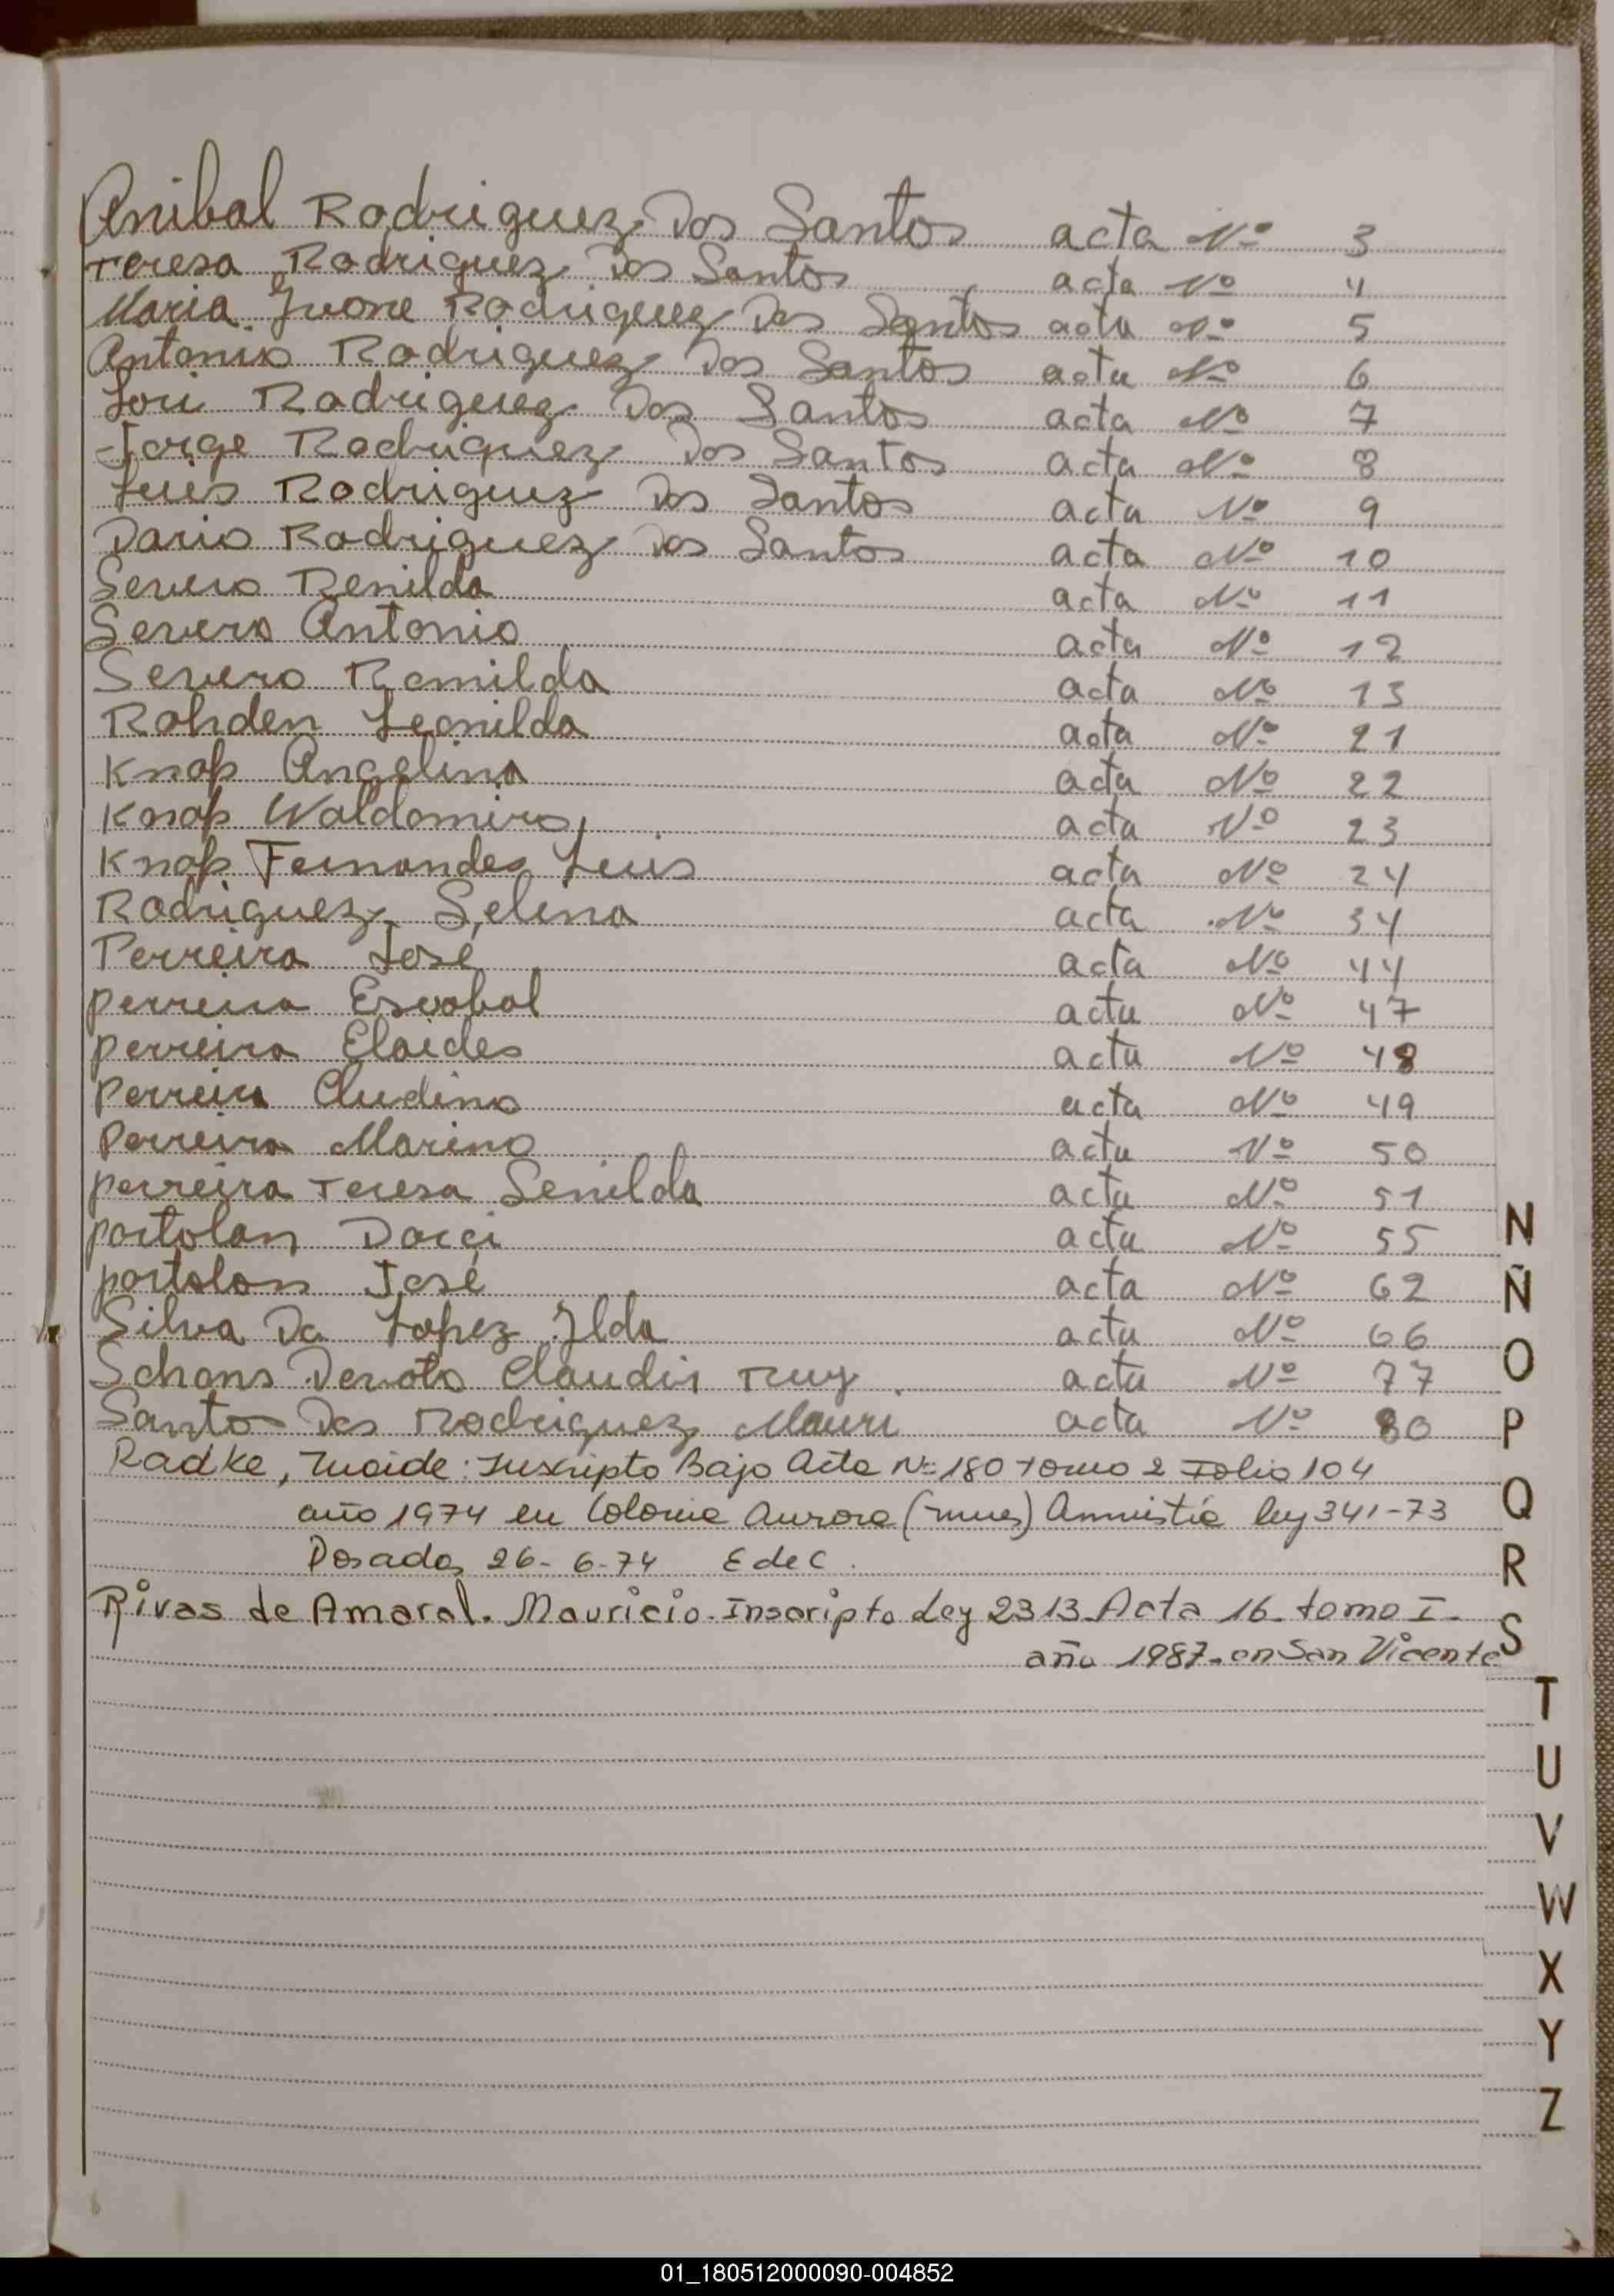 Anibal Rodriguez Dos Santos acta Nº 3
Teresa Rodriguez Dos Santos acta Nº 4
Maria Ivone Rodriguez Dos Santos acta Nº 5
Antonio Rodriguez Dos Santos acta Nº 6
Lori Rodriguez Dos Santos acta Nº 7
Jorge Rodriguez Dos Santos acta Nº 8
Luis Rodriguez Dos Santos acta Nº 9
Dario Rodriguez Dos Santos acta Nº 10
Severo Renilda acta Nº 11
Severo Antonio acta Nº 12
Severo Romilda acta Nº 13
Rohden Leonilda acta Nº 21
Knop Angelina acta Nº 22
Knop Waldomiro acta Nº 23
Knop Fernandes Luis acta Nº 24
Rodriguez Selena acta Nº 34
Perreira José acta Nº 44
perreira acta Nº 47
perreira Eloides acta Nº 48
Perreira acta Nº 49
Perreira Marino acta Nº 50
perreira Teresa Senilda acta Nº 51
portolan Darci acta Nº 55
portolan José acta Nº 62
Silva Da Lopez Ilda acta Nº 66
Schons Devoto Claudir Ruy acta Nº 77
Santos Dos Rodriguez Mauri acta Nº 80
Radke, : Inscripto Bajo Acta Nº 180 tomo 2 Folio 104
año 1974 en Colonia Aurora (mnes) Amnistía ley 341-73
Posadas 26-6-74 E de C.
Rivas de Amaral. Mauricio. Inscripto Ley 2313. Acta 16. tomo I.
año 1987. en San Vicente
N
Ñ
O
P
Q
R
S
T
U
V
W
X
Y
Z
01_180512000090-004852